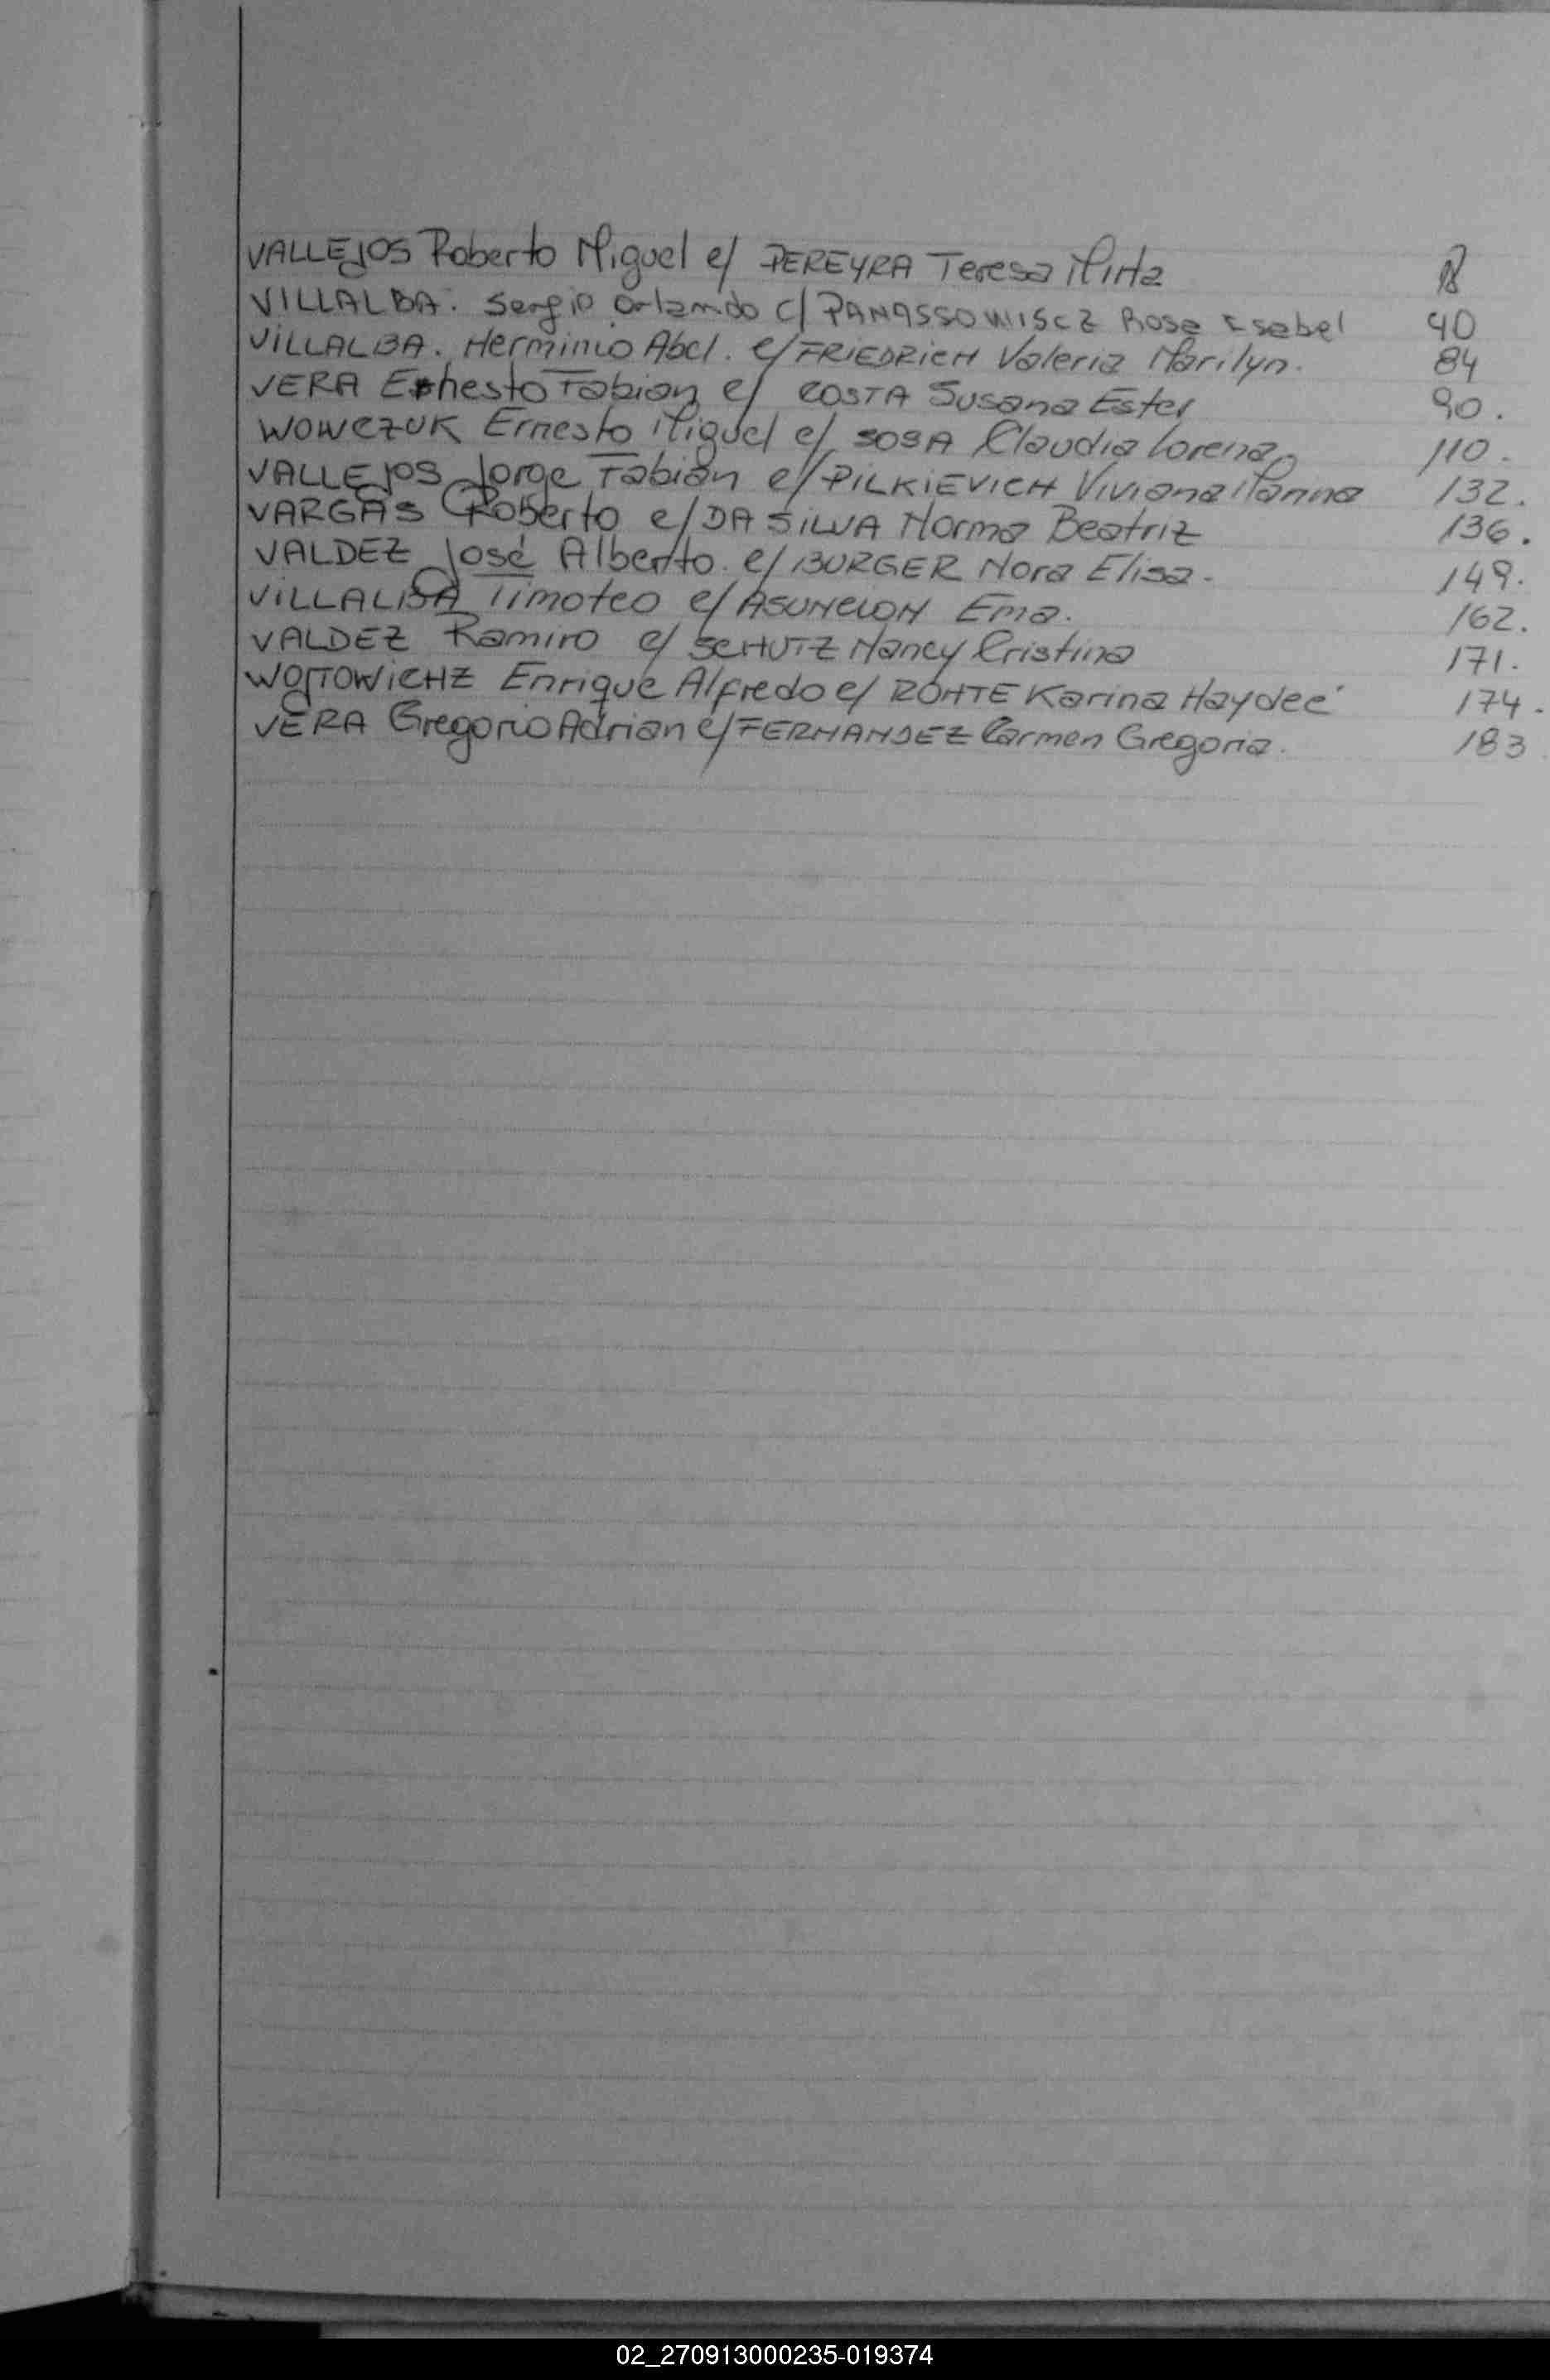 VALLEJOS Roberto Miguel c/ PEREYRA Teresa Mirta
VILLALBA. Sergio Orlando c/ PANASSOWISCZ Rosa Isabel 40
VILLALBA. Herminio Abel. c/ FRIEDRICH Valeria Marilyn. 84
VERA Ernesto Fabian c/ COSTA Susana Ester 90.
WOWCZUK Ernesto Miguel c/ SOSA Claudia Lorena 110.
VALLEJOS Jorge Fabián c/ PILKIEVICH Viviana 132.
VARGAS Roberto c/ DA SILVA Norma Beatriz 136.
VALDEZ José Alberto. c/ BURGER Nora Elisa. 149.
VILLALBA Timoteo c/ ASUNCION Ema. 162.
VALDEZ Ramiro c/ SCHUTZ Nancy Cristina 171.
WOJTOWICHZ Enrique Alfredo c/ ROHTE Karina Haydeé 174.
VERA Gregorio Adrian c/ FERNANDEZ Carmen Gregoria. 183
02_270913000235-019374